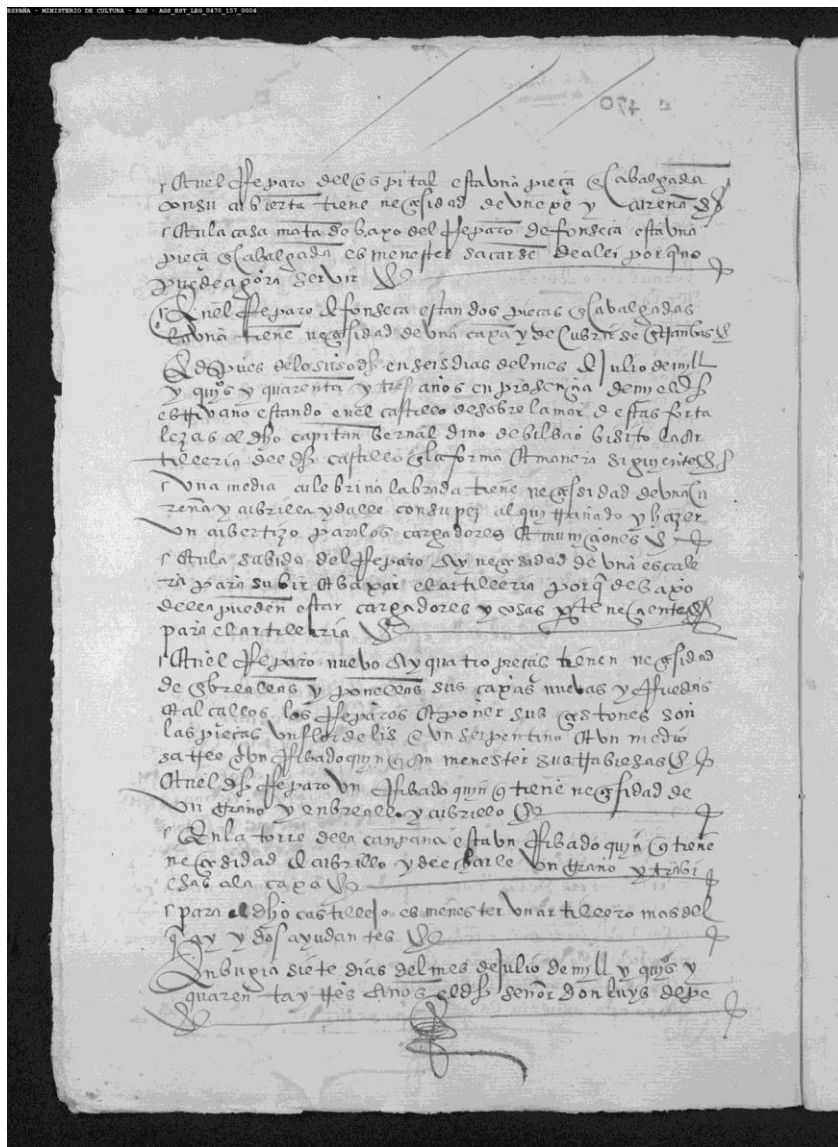 ESPAÑA - MINISTERIO DE CULTURA - AGS - AGS_EST_LEG_0470_157_0004
e 470
en el rreparo del ospital esta una pieça encabalgada
con su cubierta tiene neçesidad de un exe y cureña
en la casa mata debaxo del rreparo de fonseca esta una
pieça encabalgada es menester sacarse de alli porq no
puede agora servir
En el rreparo de fonseca estan dos pieças encabalgadas
la una tiene neçesidad de una caxa y de cubrirse entranbas
E despues de lo susodho en seis dias del mes de Julio de mill
y quios y quarenta y tres años en presençia de my el dho
escrivano estando en el castillo de sobre la mar de estas forta
lezas el dho capitan bernaldino de bilbao bisito la ar
tilleria del dho castillo en la forma e manera siguiente
una media culebrina labrada tiene neçesidad de una cu
reña y cubrilla y
un cubertizo para los cargadores e muniçiones
en la subida del rreparo ay neçesidad de una escale
ra para subir e baxar el artilleria porq debaxo
della pueden estar cargadores y cosas perteneçientes
para el artilleria
en el rreparo nuevo ay quatro pieças tienen neçesidad
de cubrellas y ponellas sus caxas nuevas y rruedas
e alçallos los rreparos e poner sus çestones son
las pieças un flor de lis e un serpentino e un medio
sacre e un rribadoquyn an menester sus trabiesas
en el dho rreparo un rribadoquyn q tiene neçesidad de
un grano y cubrillo
En la torre de la canpana esta un rribadoquyn q tiene
neçesidad de cubrillo y de echarle un grano y trabi
esas a la caxa
para el dho castillejo es menester un artillero mas del
q ay y dos ayudantes
En bugia siete dias del mes de Julio de mill y quios y
quarenta y tres años el dho señor don luys de pe